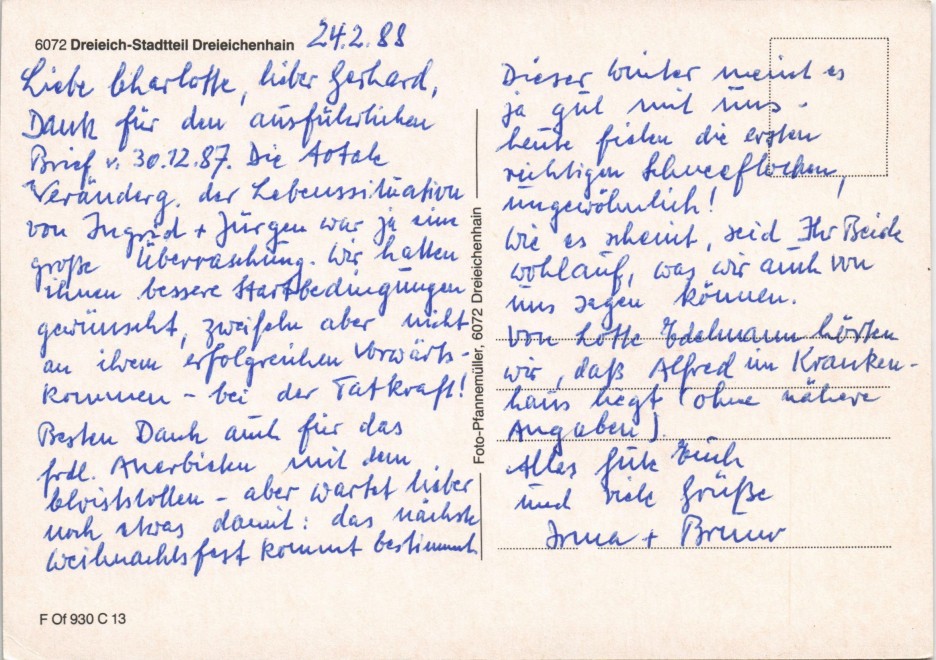 6072 Dreieich-Stadtteil Dreieichenhain
24.2.88
Liebe Charlotte, lieber Gerhard,
Dank für den ausführlichen
Brief v. 30.12.87. Die totale
Veränderg. der Lebenssituation
von Ingrid + Jürgen war ja eine
große Überraschung. Wir hatten
ihnen bessere Startbedingungen
gewünscht, zweifeln aber nicht
an ihrem erfolgreichen Vorwärts-
kommen - bei der Tatkraft!
Besten Dank auch für das
frdl. Anerbieten mit dem
Christstollen - aber wartet lieber
noch etwas damit: das nächste
Weihnachtsfest kommt bestimmt
Foto-Pfannemüller, 6072 Dreieichenhain
Dieser Winter meint es
ja gut mit uns.
heute fielen die ersten
richtigen Schneeflocken,
ungewöhnlich!
Wie es scheint, seid Ihr Beide
wohlauf, was wir auch von
uns sagen können.
Von Lotte Edelmann hörten
wir, daß Alfred im Kranken-
haus liegt (ohne nähere
Angaben).
Alles Gute Euch
und viele Grüße
Irma + Bruno
F Of 930 C 13